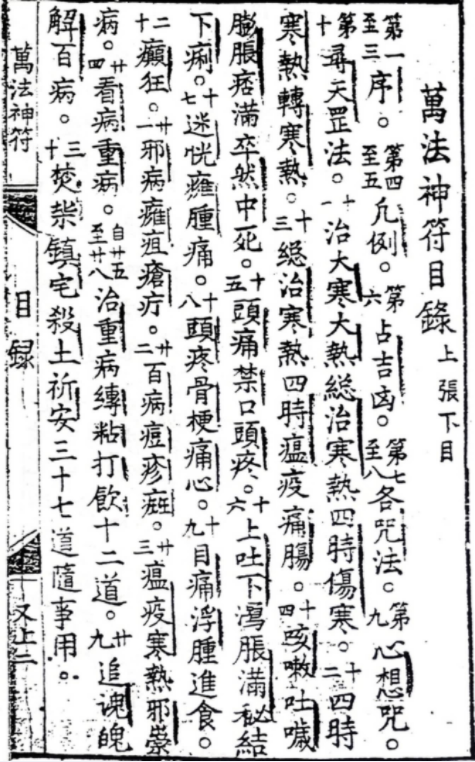 萬法神符目錄 上張下目
第一至三序。第四至五凡例。第六占吉凶。第七至八各咒法。第九心想咒。
第十尋天罡法。十一治大寒大熱総治寒熱四時傷寒。十二四時
寒熱轉寒熱。十三総治寒熱四時瘟疫痛腸。十四咳嗽吐
膨脹痞滿卒然中死。十五頭痛禁口頭疼。十六上吐下瀉脹滿秘結
下痢。十七迷恍癰腫痛。十八頭疼骨梗痛心。十九目痛浮腫進食。
二十癲狂。廿一邪病癰疽瘡疔。廿二百病痘疹。廿三瘟疫寒熱邪祟
病。廿四看病重病。自廿五至廿八治重病縛粘打飲十二道。廿九追魂魄
解百病。三十焚柴鎮宅殺土祈安三十七道隨事用。
萬法神符
目錄
又上二